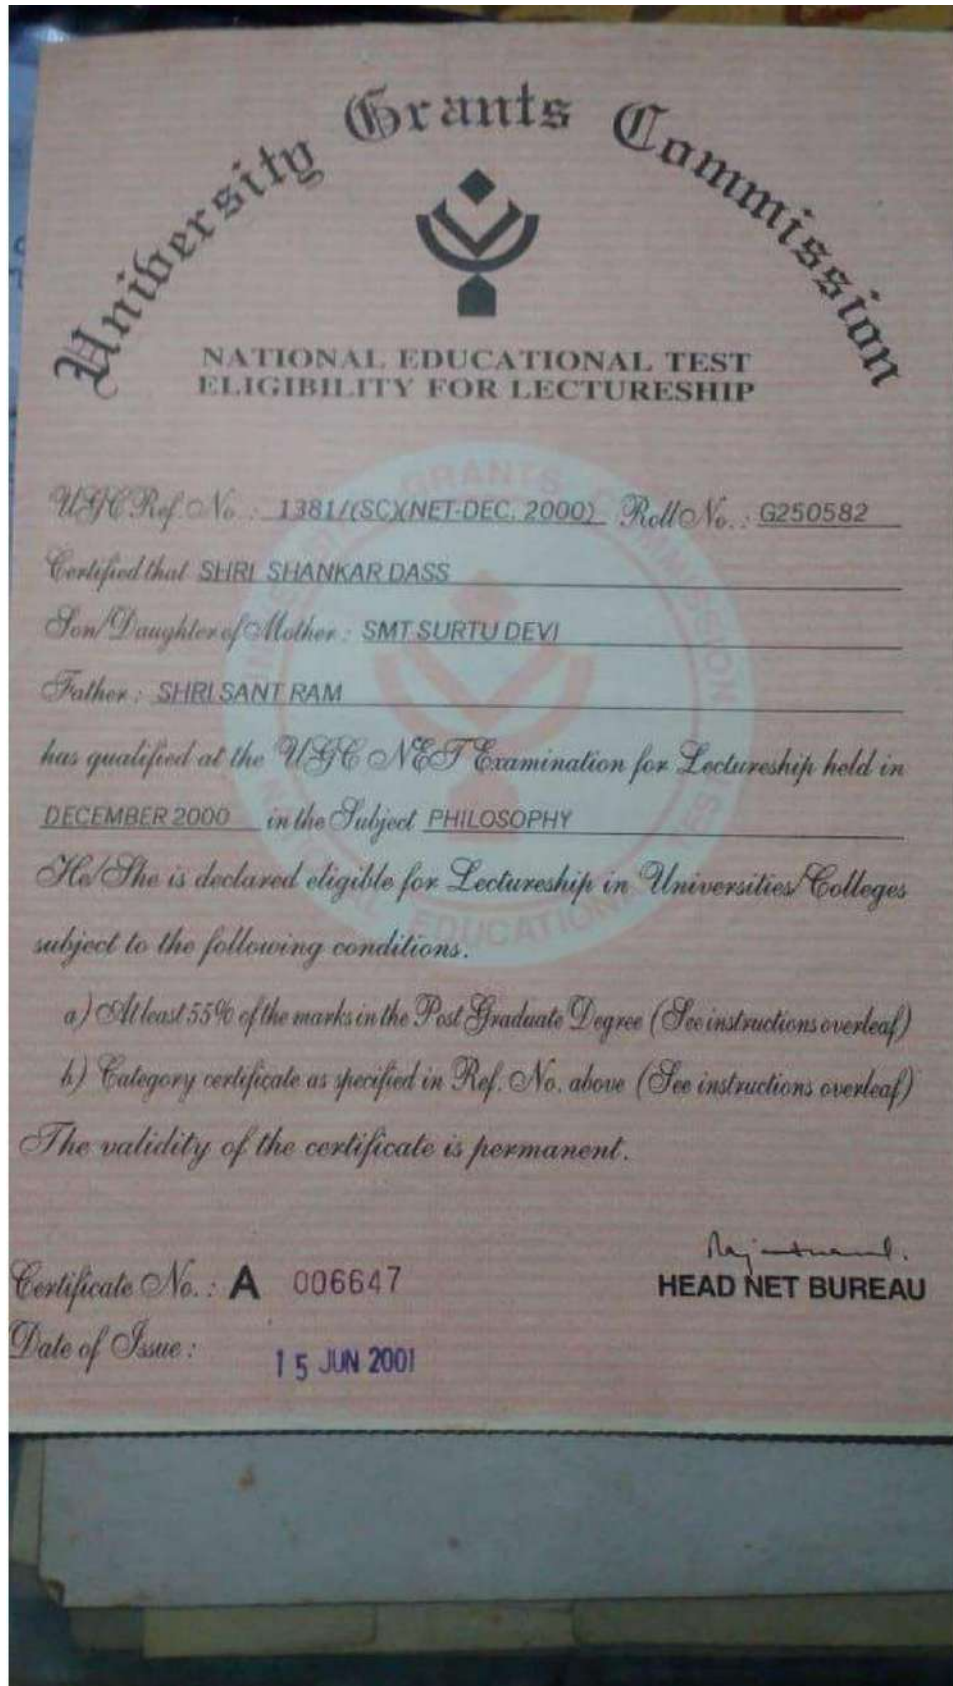 University Grants Commission
NATIONAL EDUCATIONAL TEST
ELIGIBILITY FOR LECTURESHIP
UGC Ref. No. : 1381/(SC)(NET-DEC. 2000) Roll No. : G250582
Certified that SHRI SHANKAR DASS
Son/Daughter of Mother : SMT SURTU DEVI
Father : SHRI SANT RAM
has qualified at the UGC NET Examination for Lectureship held in
DECEMBER 2000 in the Subject PHILOSOPHY
He/She is declared eligible for Lectureship in Universities/Colleges
subject to the following conditions.
a) At least 55% of the marks in the Post Graduate Degree (See instructions overleaf)
b) Category certificate as specified in Ref. No. above (See instructions overleaf)
The validity of the certificate is permanent.
HEAD NET BUREAU
Certificate No. : A 006647
Date of Issue : 15 JUN 2001